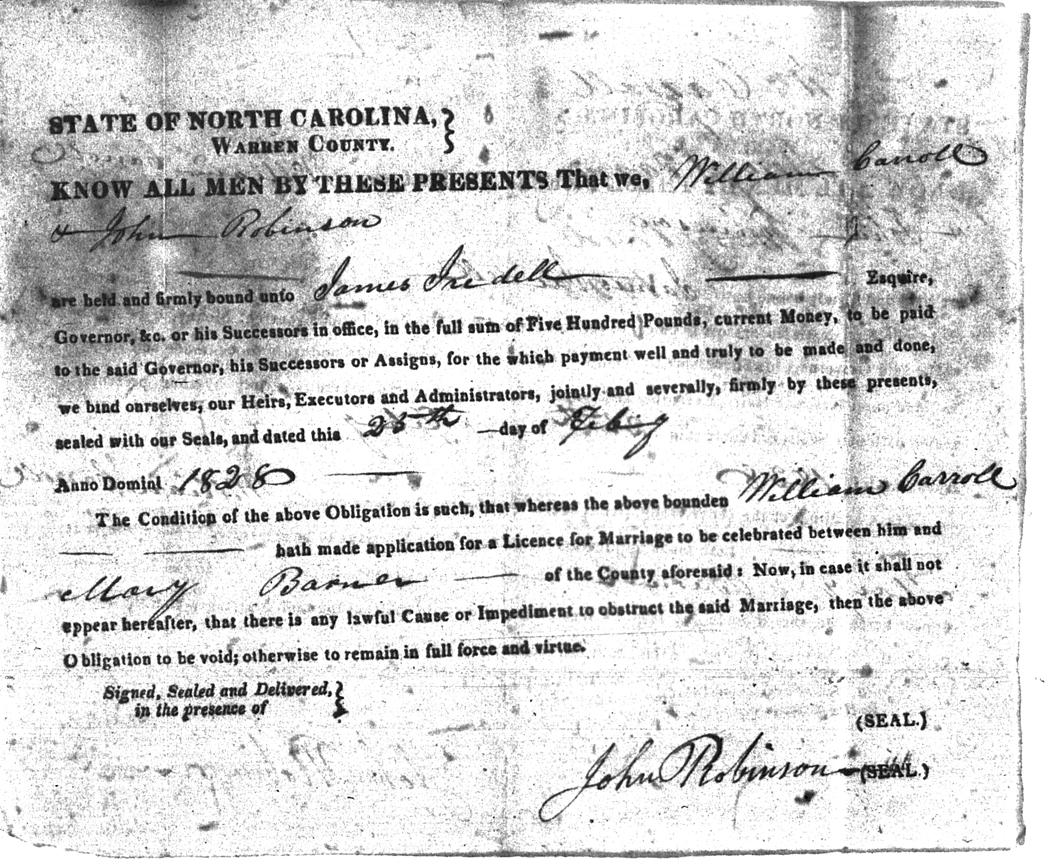 STATE OF NORTH CAROLINA,
WARREN COUNTY.
KNOW ALL MEN BY THESE PRESENTS That we, William Carroll
& John Robinson
are held and firmly bound unto James Iredell Esquire,
Governor, &c. or his Successors in office, in the full sum of Five Hundred Pounds, current Money, to be paid
to the said Governor, his Successors or Assigns, for the which payment well and truly to be made and done,
we bind ourselves, our Heirs, Executors and Administrators, jointly and severally, firmly by these presents,
sealed with our Seals, and dated this 25th day of Feby
Anno Domini 1828
The Condition of the above Obligation is such, that whereas the above bounden William Carroll
hath made application for a Licence for Marriage to be celebrated between him and
Mary Barner of the County aforesaid: Now, in case it shall not
appear hereafter, that there is any lawful Cause or Impediment to obstruct the said Marriage, then the above
Obligation to be void; otherwise to remain in full force and virtue.
Signed, Sealed and Delivered,
in the presence of
(SEAL.)
John Robinson (SEAL.)